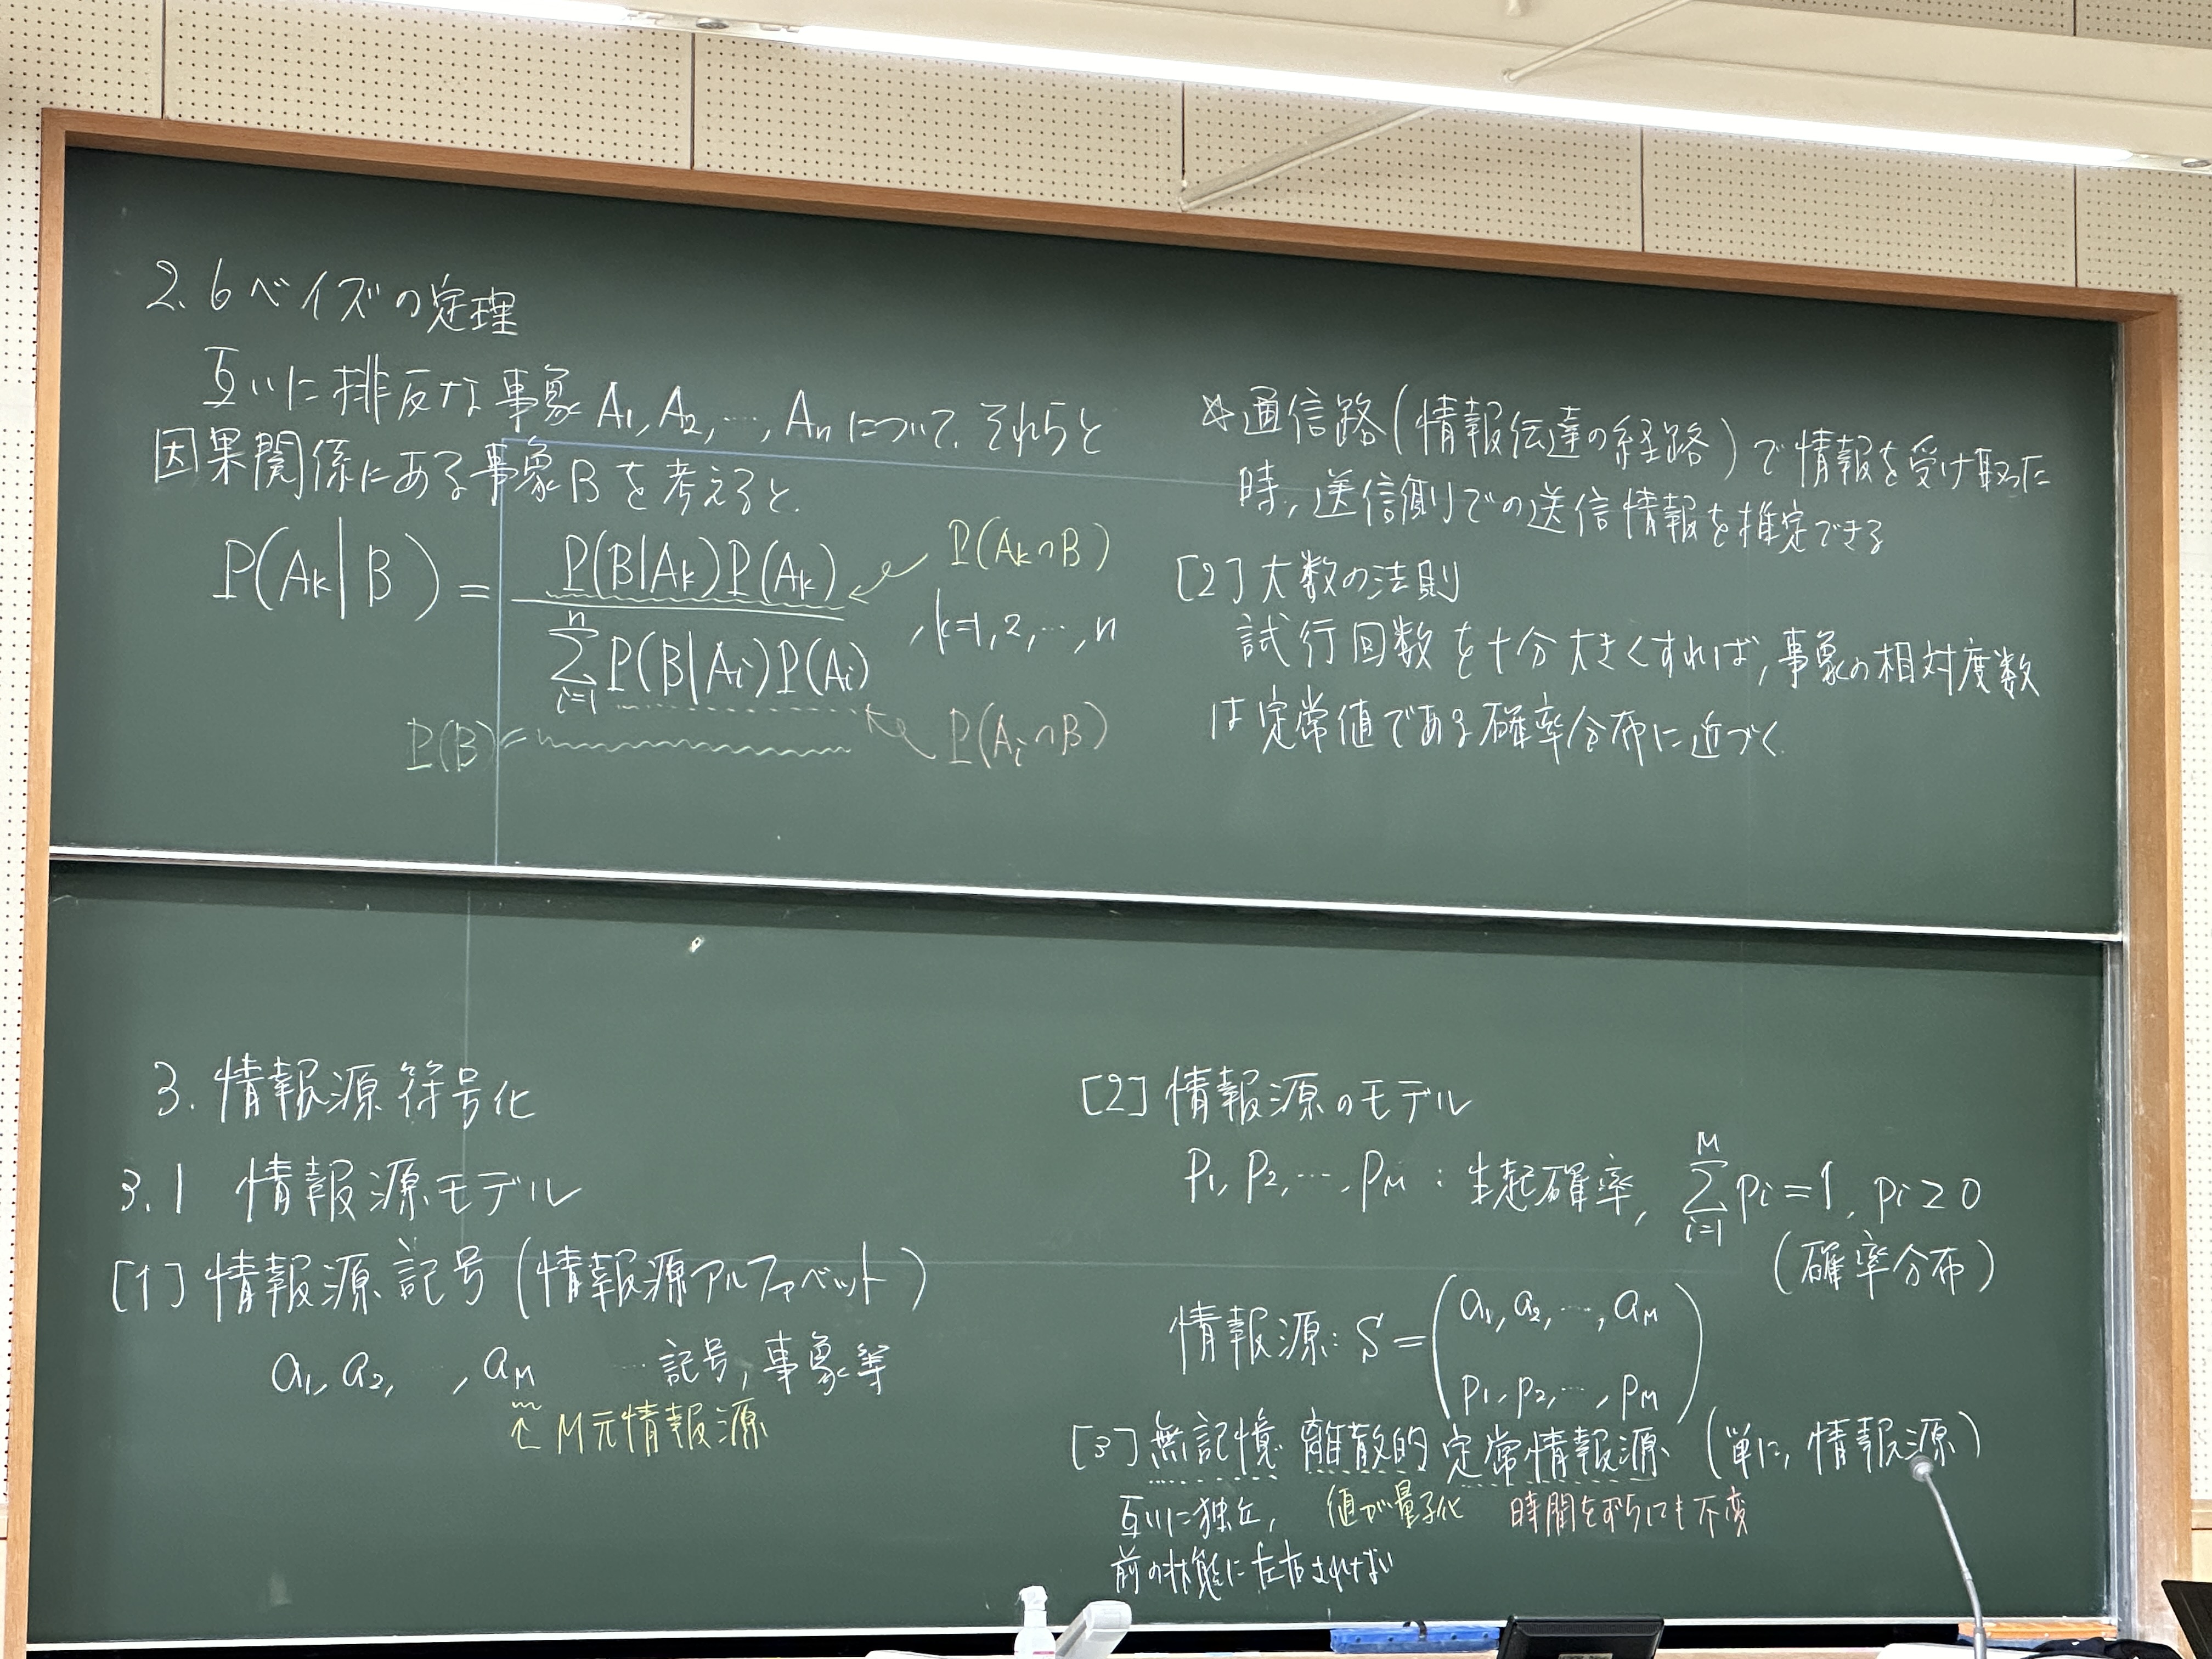 2.6 ベイズの定理
互いに排反な事象 A₁, A₂, …, Aₙ について、それらと
因果関係にある事象 B を考えると、
P(Aₖ|B) = P(B|Aₖ)P(Aₖ) / Σⁿᵢ₌₁ P(B|Aᵢ)P(Aᵢ) , k=1, 2, …, n
P(Aₖ∩B)
P(Aᵢ∩B)
P(B)=
☆通信路(情報伝達の経路)で情報を受け取った
時, 送信側での送信情報を推定できる
[2] 大数の法則
試行回数を十分大きくすれば, 事象の相対度数
は定常値である確率分布に近づく.
3. 情報源符号化
3.1 情報源モデル
[1] 情報源記号(情報源アルファベット)
a₁, a₂, …, a_M … 記号, 事象等
↑ M元情報源
[2] 情報源のモデル
p₁, p₂, …, p_M : 生起確率, Σᴹᵢ₌₁ pᵢ = 1, pᵢ ≥ 0
(確率分布)
情報源: S = (a₁, a₂, …, a_M
p₁, p₂, …, p_M)
[3] 無記憶 離散的 定常情報源 (単に, 情報源)
互いに独立, 値が量子化 時間をずらしても不変
前の状態に左右されない